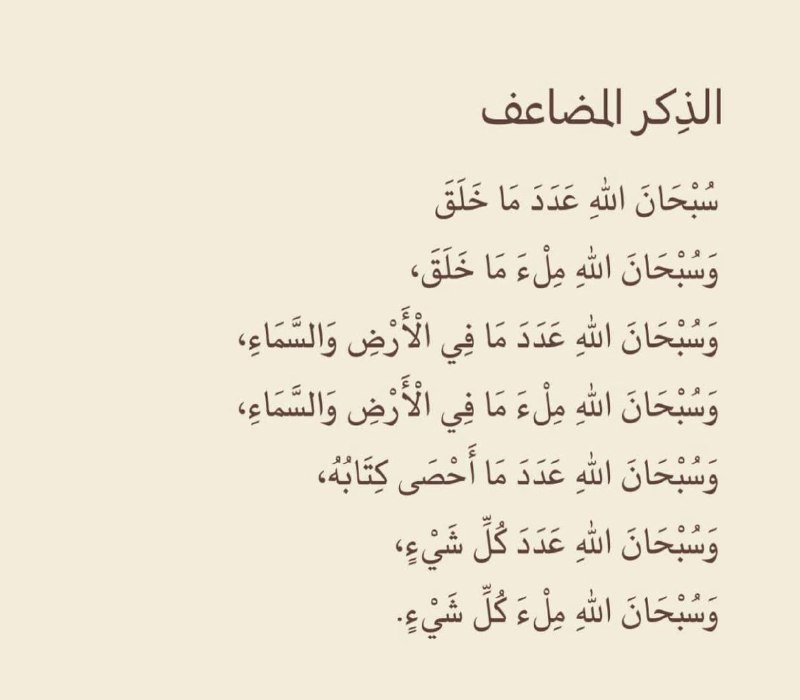 الذِكر المضاعف
سُبْحَانَ اللهِ عَدَدَ مَا خَلَقَ
وَسُبْحَانَ اللهِ مِلْءَ مَا خَلَقَ،
وَسُبْحَانَ اللهِ عَدَدَ مَا فِي الْأَرْضِ وَالسَّمَاءِ،
وَسُبْحَانَ اللهِ مِلْءَ مَا فِي الْأَرْضِ وَالسَّمَاءِ،
وَسُبْحَانَ اللهِ عَدَدَ مَا أَحْصَى كِتَابُهُ،
وَسُبْحَانَ اللهِ عَدَدَ كُلِّ شَيْءٍ،
وَسُبْحَانَ اللهِ مِلْءَ كُلِّ شَيْءٍ.